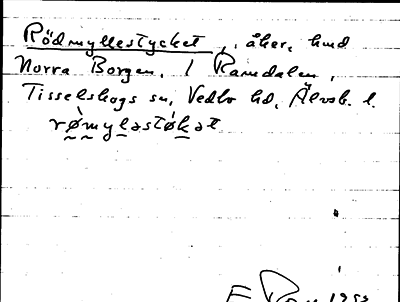 Rödmyllestycket, åker, hmd
Norra Borgen, i Ramdalen,
Tisselskogs sn, Vedbo hd, Älvsb. l.
rømylastøkat
1953